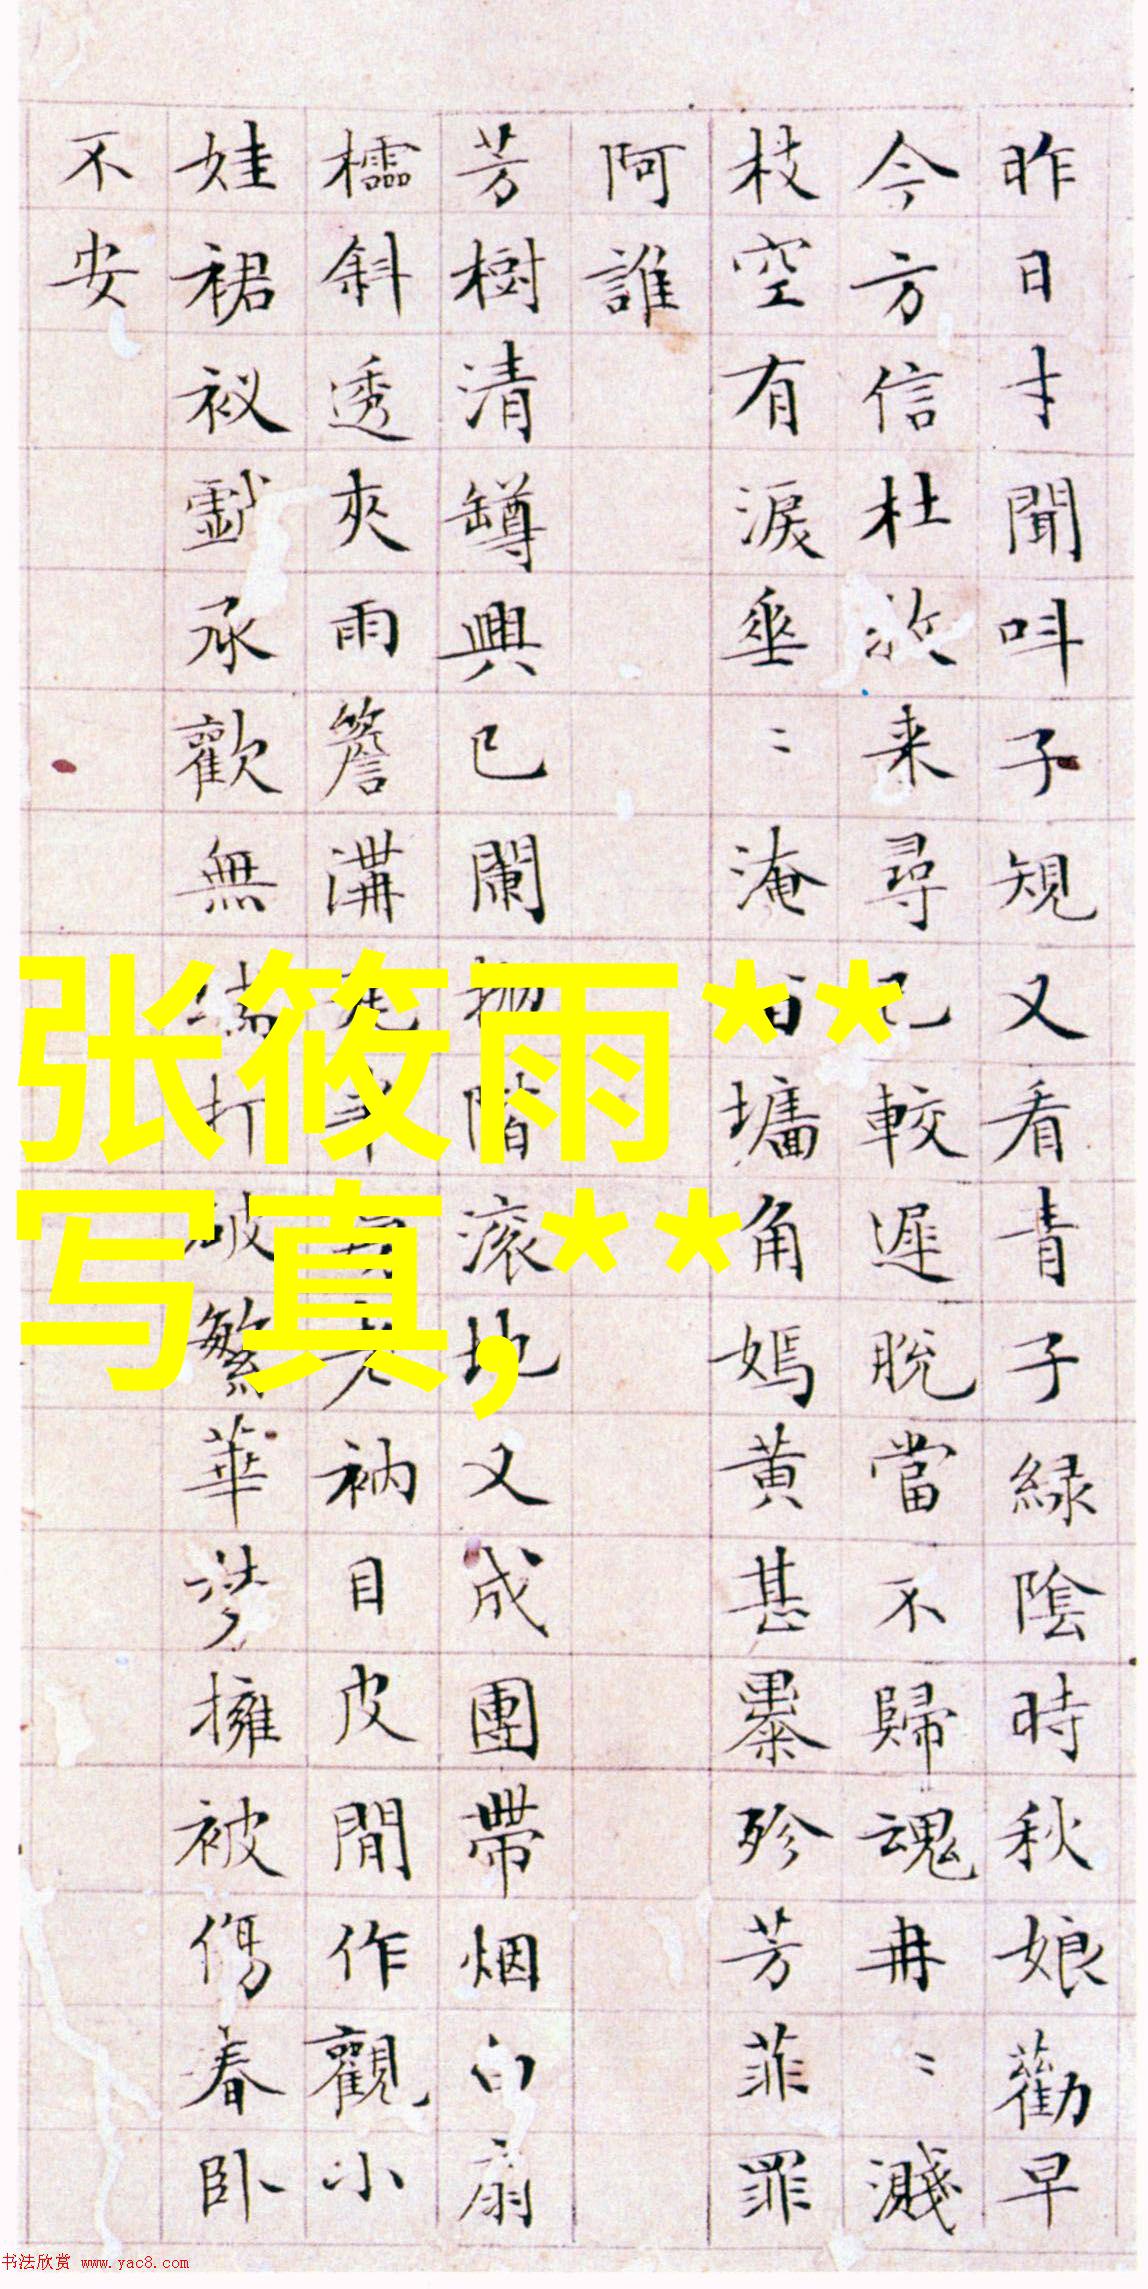 昨日才聞叫子規又看青子緑陰時秋娘勸早
今方信杜牧来尋已較遲脫當不歸魂冉〻濺
枝空有淚垂〻淹留墻角嫣黄甚纍殄芳菲罪
阿誰
芳樹清罇興已闌拋階滚地又成團帶烟白扇
櫺斜透夾雨簷溝衲目皮閒作觀小
娃裙衩戲承歡無端打破繁華夢擁被傷春卧
不安
张筱雨**
写真,**
书法欣赏 www.yac8.com